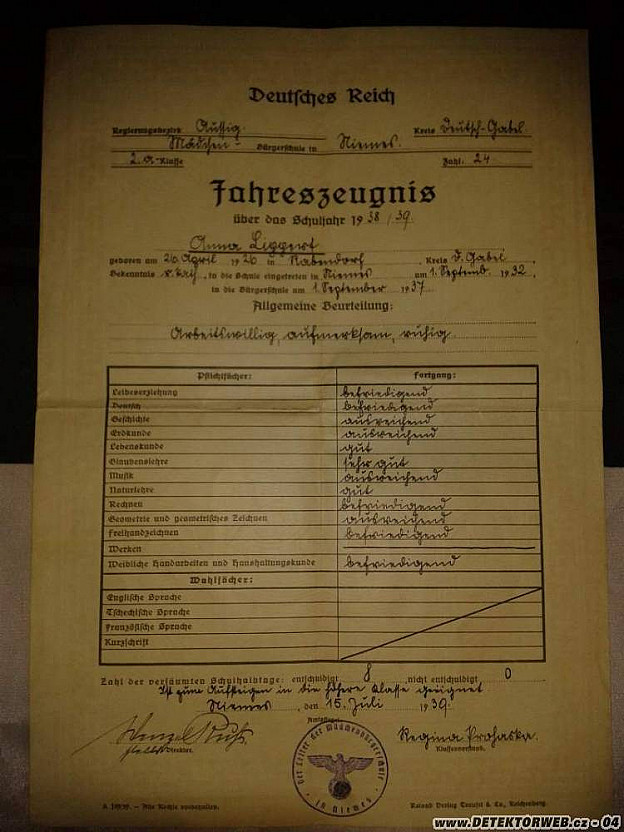 Deutsches Reich
Regierungsbezirk Aussig Kreis Deutsch-Gabel
Mädchen- Bürgerschule in Niemes.
2.a-Klasse Zahl: 24
Jahreszeugnis
über das Schuljahr 1938/39.
Anna Leppert
geboren am 26. April 1926 in Rabendorf, Kreis D. Gabel,
Bekenntnis r. kath., in die Schule eingetreten in Niemes am 1. Septemb. 1932,
in die Bürgerschule am 1. September 1937
Allgemeine Beurteilung:
Arbeitswillig, aufmerksam, ruhig.
Pflichtfächer: Fortgang:
Leibeserziehung befriedigend
Deutsch befriedigend
Geschichte ausreichend
Erdkunde ausreichend
Lebenskunde gut
Glaubenslehre sehr gut
Musik ausreichend
Naturlehre gut
Rechnen befriedigend
Geometrie und geometrisches Zeichnen ausreichend
Freihandzeichnen befriedigend
Werken
Weibliche Handarbeiten und Haushaltungskunde befriedigend
Wahlfächer:
Englische Sprache
Tschechische Sprache
Französische Sprache
Kurzschrift
Zahl der versäumten Schulhalbtage: entschuldigt 8 nicht entschuldigt 0
Ist zum Aufsteigen in die höhere Klasse geeignet
Niemes, den 15. Juli 1939.
Amtssiegel
Direktor.
Regina Prohaska.
Klassenvorstand.
Der Leiter der Mädchenbürgerschule
in Niemes
Alle Rechte vorbehalten.
Roland Verlag & Co., Reichenberg.
www.DETEKTORWEB.cz - 04